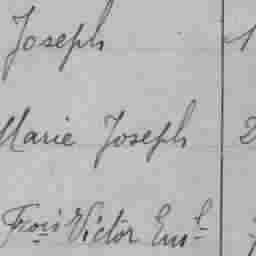 Joseph 1
Marie Joseph 2
Frois Victor Eus.e